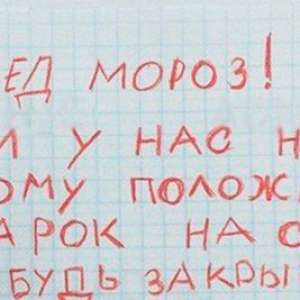 ЕД МОРОЗ!
И У НАС Н
ОМУ ПОЛОЖ
АРОК НА С
БУДЬ ЗАКРЫ